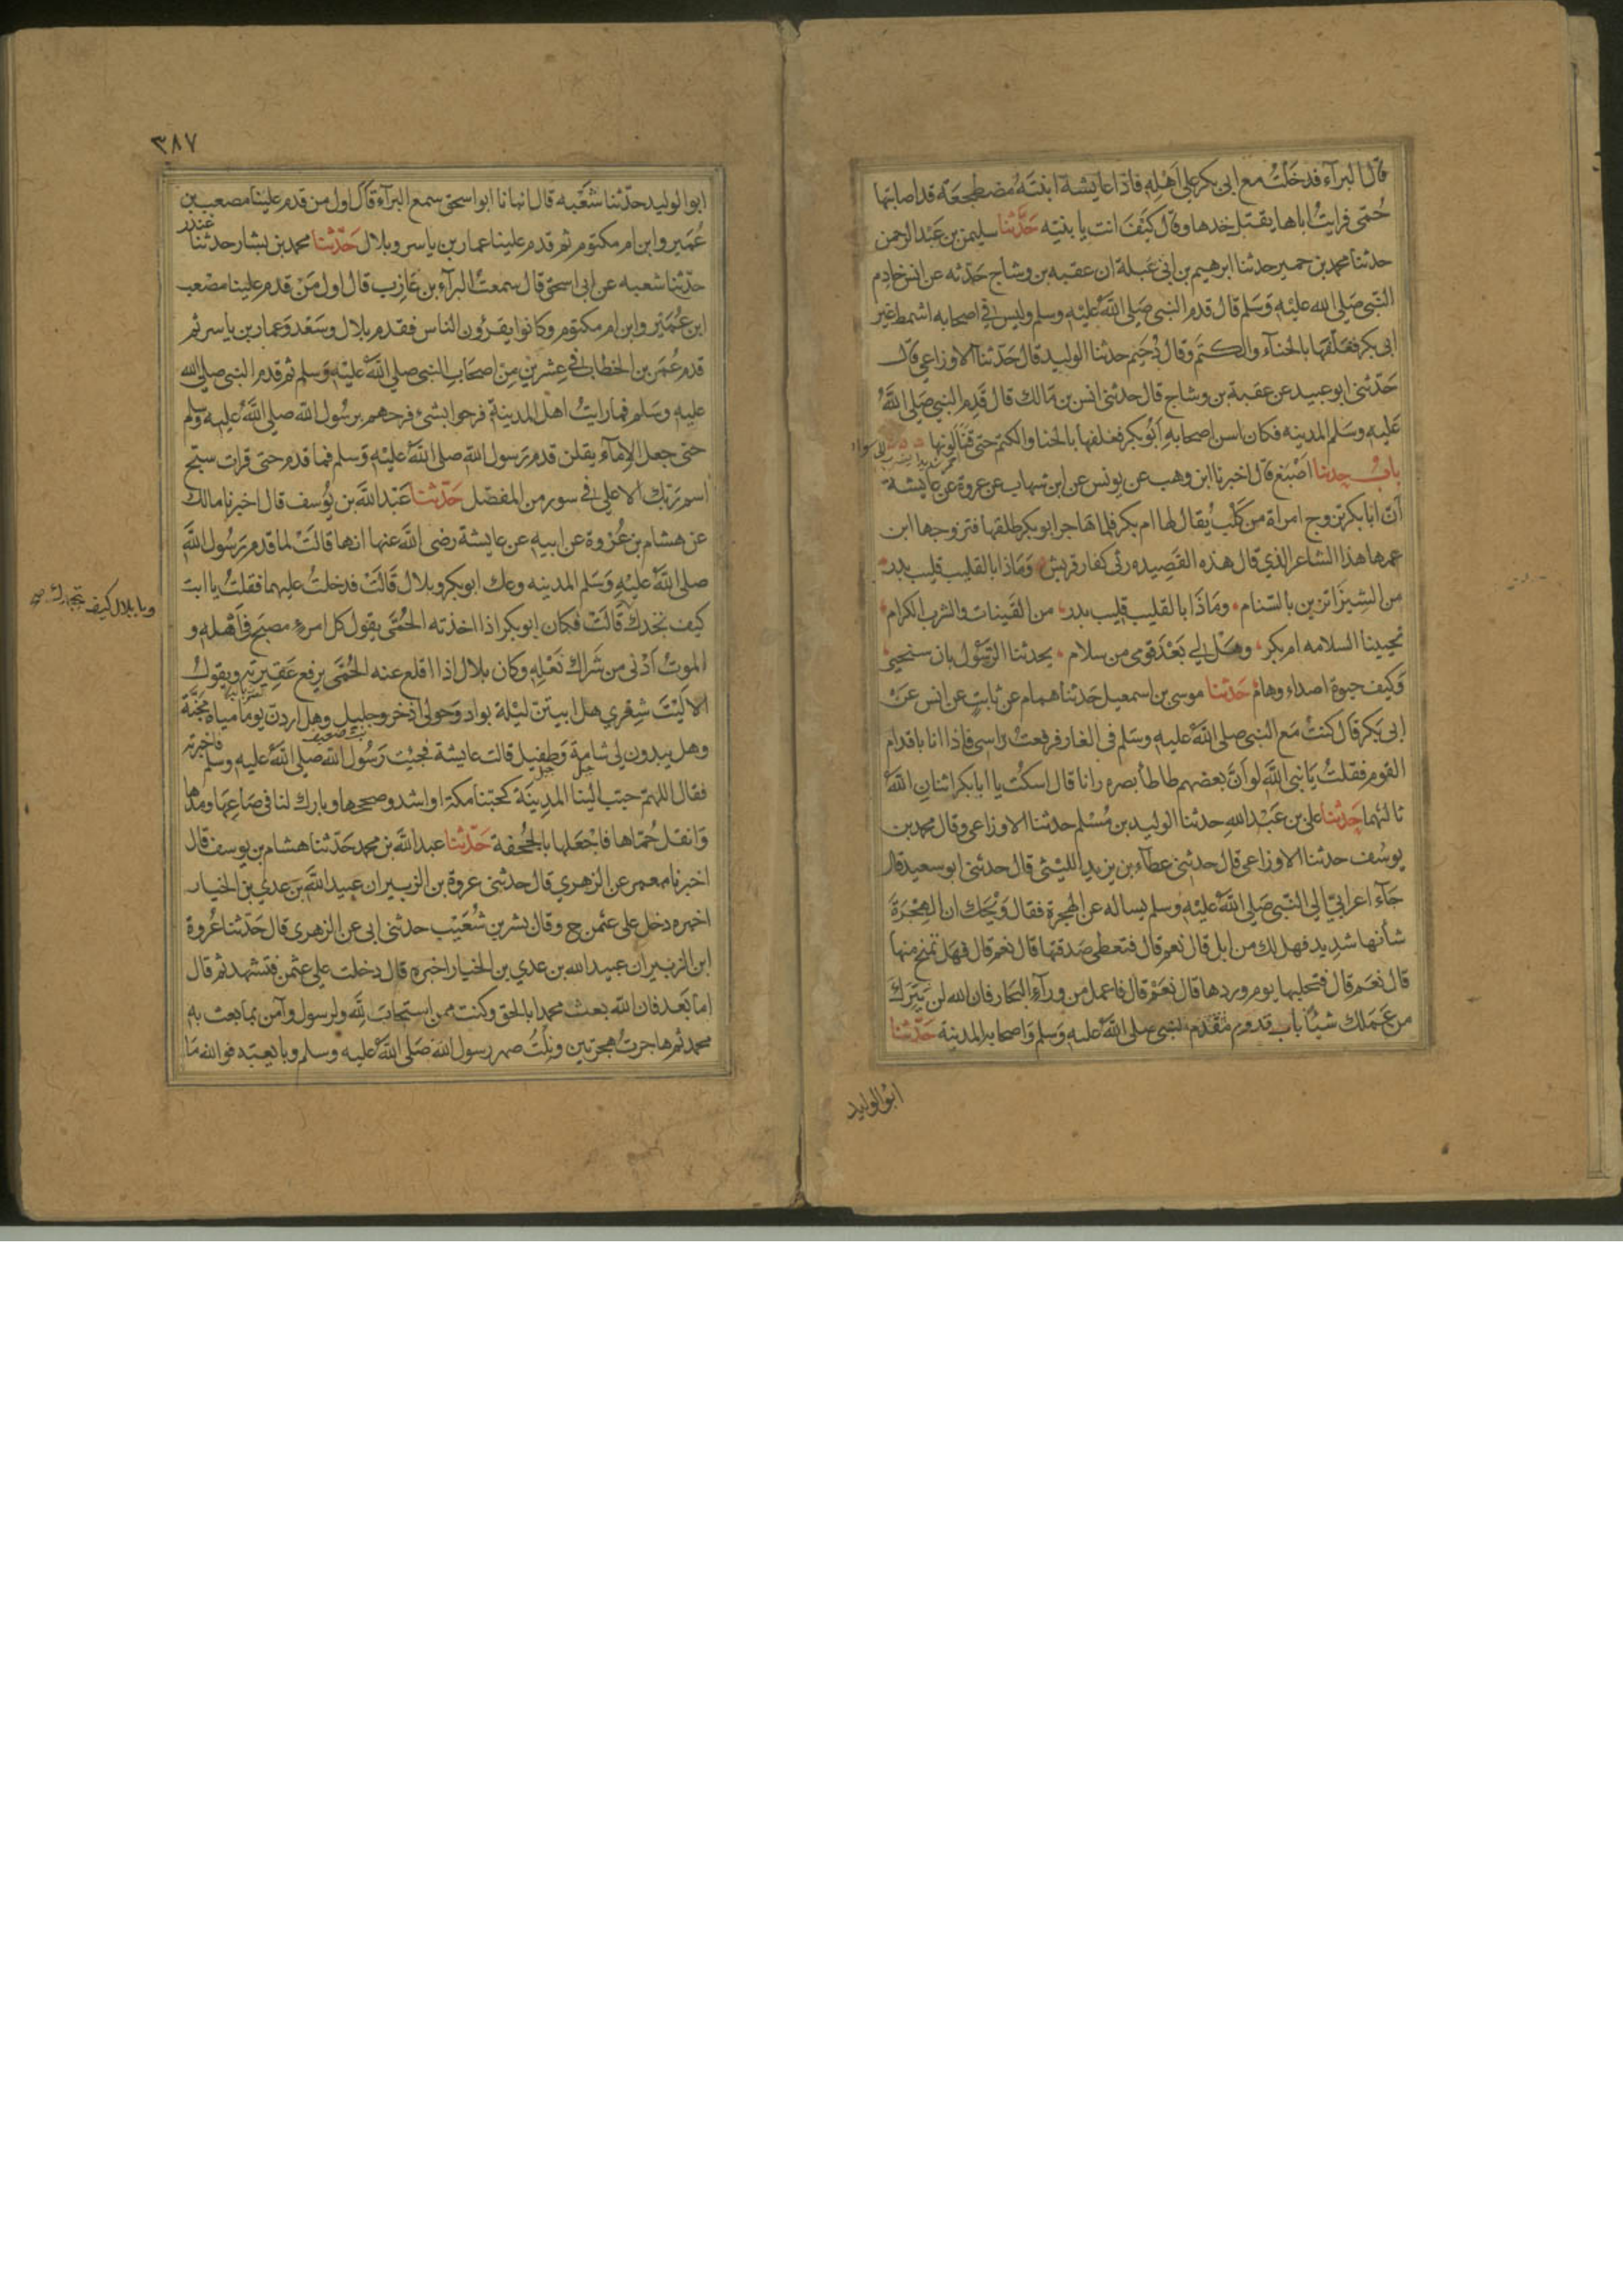 قال البرآء فدخلت مع ابى بكر على اهله فاذا عايشة ابنته مضطجعة قد اصابتها
حمى فرايت اباها يقبل خدها وقال كيف انت يا بنيه حدثنا سليمن بن عبد الرحمن
حدثنا محمد بن حمير حدثنا ابرهيم بن ابى عبلة ان عقبه بن وشاج حدثه عن انس خادم
النبى صلى الله عليه وسلم قال قدم النبى صلى الله عليه وسلم وليس فى اصحابه اشمط غير
ابى بكر فغلفها بالحنآء والكتم وقال دحيم حدثنا الوليد قال حدثنا الاوزاعى قال
حدثنى ابو عبيد عن عقبة بن وشاج قال حدثنى انس بن مالك قال قدم النبى صلى الله
عليه وسلم المدينه فكان اسن اصحابه ابو بكر فغلفها بالحنا والكتم حتى قنا لونها
باب حدثنا اصبغ قال اخبرنا ابن وهب عن يونس عن ابن شهاب عن عروة عن عايشة
ان ابا بكر تزوج امراة من كلب يقال لها ام بكر فلما هاجر ابو بكر طلقها فتزوجها ابن
عمها هذا الشاعر الذي قال هذه القصيده رثى كفار قريش وماذا بالقليب قليب بدر
من الشيزا تزين بالسنام وماذا بالقليب قليب بدر من القينات والشرب الكرام
تحيينا السلامه ام بكر وهل لي بعد قومى من سلام يحدثنا الرسول بان سنحيى
وكيف حيوة اصداء وهام حدثنا موسى بن اسمعيل حدثنا همام عن ثابت عن انس عن
ابى بكر قال كنت مع النبى صلى الله عليه وسلم فى الغار فرفعت راسى فاذا انا باقدام
القوم فقلت يا نبى الله لو ان بعضهم طاطا بصره رانا قال اسكت يا ابا بكر اثنان الله
ثالثهما حدثنا على بن عبد الله حدثنا الوليد بن مسلم حدثنا الاوزاعى وقال محمد بن
يوسف حدثنا الاوزاعى قال حدثنى عطآء بن يزيد الليثى قال حدثنى ابو سعيد قال
جآء اعرابى الى النبى صلى الله عليه وسلم يساله عن الهجرة فقال ويحك ان الهجرة
شأنها شديد فهل لك من ابل قال نعم قال فتعطى صدقتها قال نعم قال فهل تمنح منها
قال نعم قال فتحلبها يوم وردها قال نعم قال فاعمل من ورآء البحار فان الله لن يترك
من عملك شيئا باب قدوم مقدم النبى صلى الله عليه وسلم واصحابه المدينة حدثنا
ابو الوليد
٣٨٧
ابو الوليد حدثنا شعبه قال انبانا ابو اسحق سمع البرآء قال اول من قدم علينا مصعب بن
عمير وابن ام مكتوم ثم قدم علينا عمار بن ياسر وبلال حدثنا محمد بن بشار حدثنا غندر
حدثنا شعبه عن ابى اسحق قال سمعت البرآء بن عازب قال اول من قدم علينا مصعب
ابن عمير وابن ام مكتوم وكانوا يقرؤن الناس فقدم بلال وسعد وعمار بن ياسر ثم
قدم عمر بن الخطاب فى عشرين من اصحاب النبى صلى الله عليه وسلم ثم قدم النبى صلى الله
عليه وسلم فما رايت اهل المدينة فرحوا بشىء فرحهم برسول الله صلى الله عليه وسلم
حتى جعل الامآء يقلن قدم رسول الله صلى الله عليه وسلم فما قدم حتى قرات سبح
اسم ربك الاعلى فى سور من المفصل حدثنا عبد الله بن يوسف قال اخبرنا مالك
عن هشام بن عروة عن ابيه عن عايشة رضى الله عنها انها قالت لما قدم رسول الله
صلى الله عليه وسلم المدينه وعك ابو بكر وبلال قالت فدخلت عليهما فقلت يا ابت
كيف تجدك قالت فكان ابو بكر اذا اخذته الحمى يقول كل امرء مصبح فى اهله و
ويا بلال كيف تجدك
الموت ادنى من شراك نعله وكان بلال اذا اقلع عنه الحمى يرفع عقيرته ويقول
الا ليت شعري هل ابيتن ليلة بواد وحولى اذخر وجليل وهل اردن يوما مياه مجنة
وهل يبدون لى شامة وطفيل قالت عايشة فجيت رسول الله صلى الله عليه وسلم فاخبرته
فقال اللهم حبب الينا المدينة كحبنا مكة او اشد وصححها وبارك لنا فى صاعها ومدها
وانقل حماها فاجعلها بالجحفة حدثنا عبد الله بن محمد حدثنا هشام بن يوسف قال
اخبرنا معمر عن الزهري قال حدثنى عروة بن الزبير ان عبيد الله بن عدي بن الخيار
اخبره دخل على عثمن ح وقال بشر بن شعيب حدثنى ابى عن الزهرى قال حدثنا عروة
ابن الزبير ان عبيد الله بن عدي بن الخيار اخبره قال دخلت على عثمن فتشهد ثم قال
اما بعد فان الله بعث محمدا بالحق وكنت ممن استجاب لله ولرسوله وآمن بما بعث به
محمد ثم هاجرت هجرتين ونلت صهر رسول الله صلى الله عليه وسلم وبايعته فوالله ما